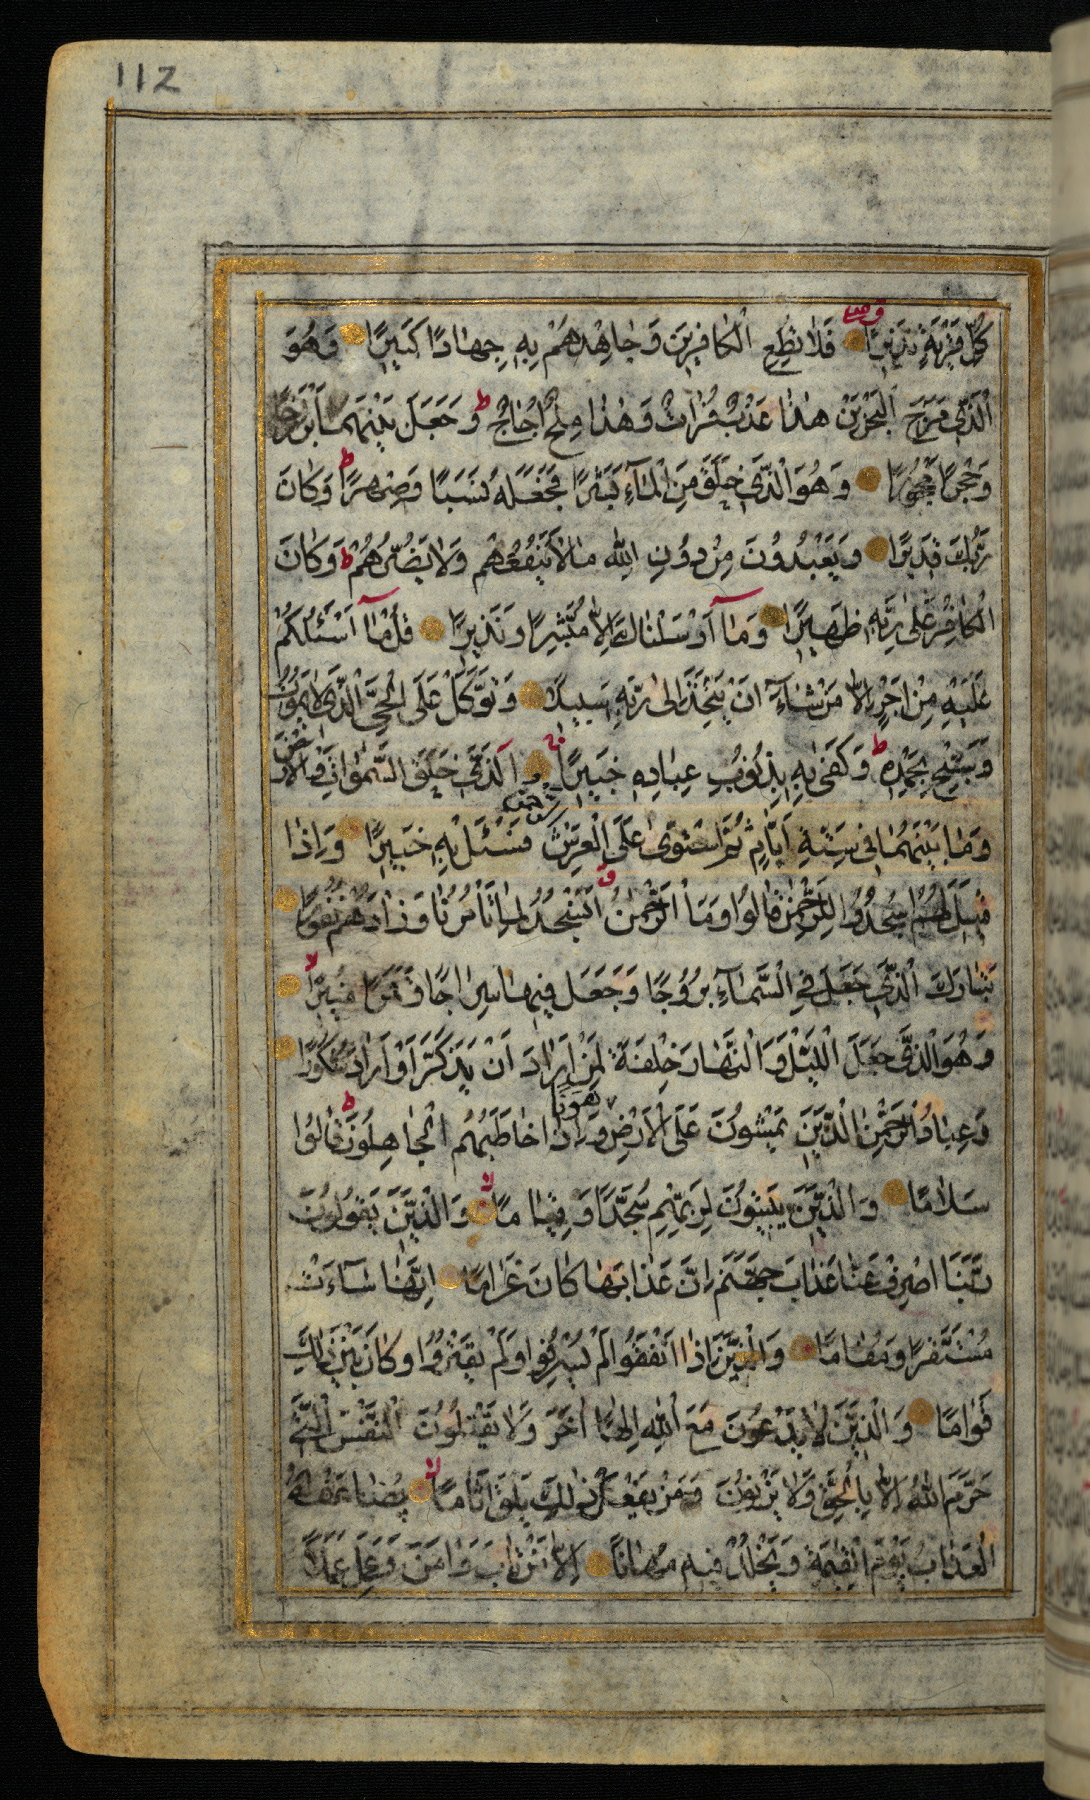 112
كُلِّ قَرْيَةٍ نَذِيرًا فَلَا تُطِعِ الْكَافِرِينَ وَجَاهِدْهُمْ بِهِ جِهَادًا كَبِيرًا وَهُوَ
الَّذِي مَرَجَ الْبَحْرَيْنِ هٰذَا عَذْبٌ فُرَاتٌ وَهٰذَا مِلْحٌ اُجَاجٌ ط وَجَعَلَ بَيْنَهُمَا بَرْزَخًا
وَحِجْرًا مَحْجُورًا وَهُوَ الَّذِي خَلَقَ مِنَ الْمَآءِ بَشَرًا فَجَعَلَهُ نَسَبًا وَصِهْرًا ط وَكَانَ
رَبُّكَ قَدِيرًا وَيَعْبُدُونَ مِنْ دُونِ اللّٰهِ مَا لَا يَنْفَعُهُمْ وَلَا يَضُرُّهُمْ ط وَكَانَ
الْكَافِرُ عَلٰى رَبِّهِ ظَهِيرًا وَمَآ اَرْسَلْنَاكَ اِلَّا مُبَشِّرًا وَنَذِيرًا قُلْ مَآ اَسْئَلُكُمْ
عَلَيْهِ مِنْ اَجْرٍ اِلَّا مَنْ شَآءَ اَنْ يَتَّخِذَ اِلٰى رَبِّهِ سَبِيلًا وَتَوَكَّلْ عَلَى الْحَيِّ الَّذِي لَا يَمُوتُ
وَسَبِّحْ بِحَمْدِهِ ط وَكَفٰى بِهِ بِذُنُوبِ عِبَادِهِ خَبِيرًا الَّذِي خَلَقَ السَّمٰوَاتِ وَالْاَرْضَ
وَمَا بَيْنَهُمَا فِي سِتَّةِ اَيَّامٍ ثُمَّ اسْتَوٰى عَلَى الْعَرْشِ فَسْئَلْ بِهِ خَبِيرًا وَاِذَا
قِيلَ لَهُمُ اسْجُدُوا لِلرَّحْمٰنِ قَالُوا وَمَا الرَّحْمٰنُ اَنَسْجُدُ لِمَا تَأْمُرُنَا وَزَادَهُمْ نُفُورًا
تَبَارَكَ الَّذِي جَعَلَ فِي السَّمَآءِ بُرُوجًا وَجَعَلَ فِيهَا سِرَاجًا وَقَمَرًا مُنِيرًا
وَهُوَ الَّذِي جَعَلَ اللَّيْلَ وَالنَّهَارَ خِلْفَةً لِمَنْ اَرَادَ اَنْ يَذَّكَّرَ اَوْ اَرَادَ شُكُورًا
وَعِبَادُ الرَّحْمٰنِ الَّذِينَ يَمْشُونَ عَلَى الْاَرْضِ هَوْنًا وَاِذَا خَاطَبَهُمُ الْجَاهِلُونَ قَالُوا
سَلَامًا وَالَّذِينَ يَبِيتُونَ لِرَبِّهِمْ سُجَّدًا وَقِيَامًا لا وَالَّذِينَ يَقُولُونَ
رَبَّنَا اصْرِفْ عَنَّا عَذَابَ جَهَنَّمَ اِنَّ عَذَابَهَا كَانَ غَرَامًا اِنَّهَا سَآءَتْ
مُسْتَقَرًّا وَمُقَامًا وَالَّذِينَ اِذَا اَنْفَقُوا لَمْ يُسْرِفُوا وَلَمْ يَقْتُرُوا وَكَانَ بَيْنَ ذٰلِكَ
قَوَامًا وَالَّذِينَ لَا يَدْعُونَ مَعَ اللّٰهِ اِلٰهًا اٰخَرَ وَلَا يَقْتُلُونَ النَّفْسَ الَّتِي
حَرَّمَ اللّٰهُ اِلَّا بِالْحَقِّ وَلَا يَزْنُونَ وَمَنْ يَفْعَلْ ذٰلِكَ يَلْقَ اَثَامًا لا يُضَاعَفْ لَهُ
الْعَذَابُ يَوْمَ الْقِيٰمَةِ وَيَخْلُدْ فِيهِ مُهَانًا اِلَّا مَنْ تَابَ وَاٰمَنَ وَعَمِلَ عَمَلًا